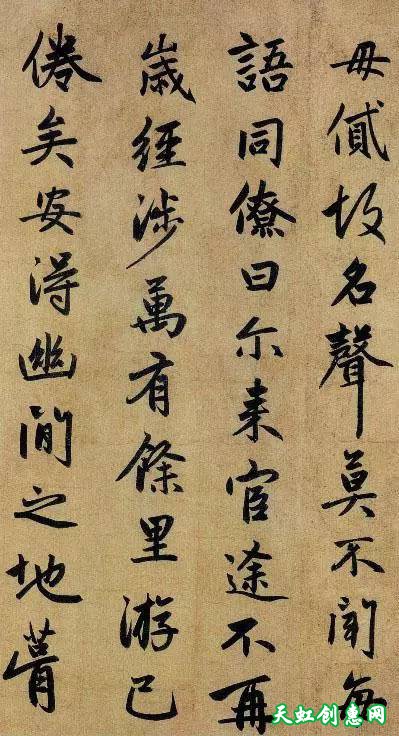 毋故名聲莫不聞每
語同僚曰尓来官途不再
歲經涉萬有餘里游已
倦矣安得幽閒之地
天虹创意网